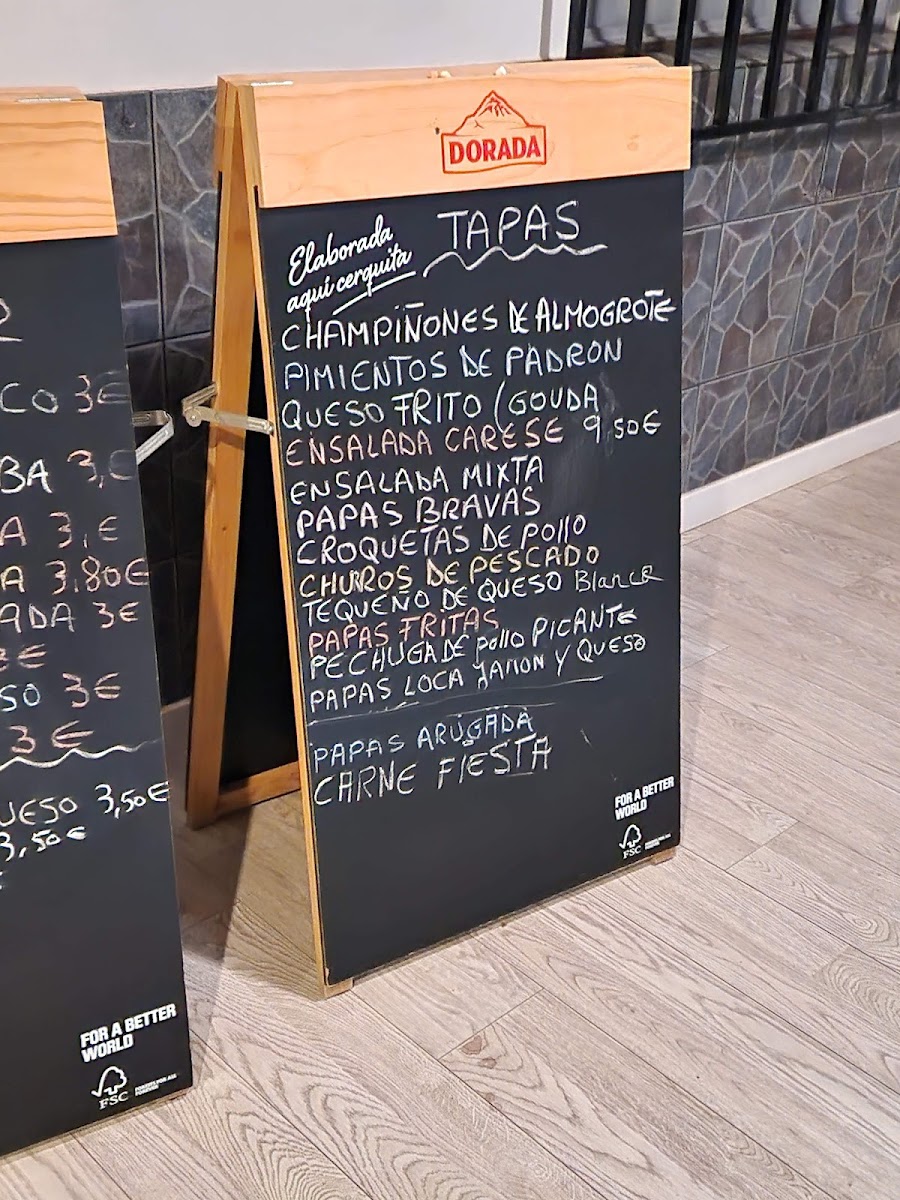 DORADA
Elaborada
aquí cerquita
TAPAS
CHAMPIÑONES DE ALMOGROTE
PIMIENTOS DE PADRON
QUESO FRITO (GOUDA
ENSALADA CARESE 9,50€
ENSALADA MIXTA
PAPAS BRAVAS
CROQUETAS DE POllO
CHURROS DE PESCADO
TEQUEÑO DE QUESO Blanco
PAPAS FRITAS
PECHUGA DE pollo PICANTE
PAPAS LOCA JAMON Y QUESO
PAPAS ARUGADA
CARNE FIESTA
FOR A BETTER
WORLD
FSC
CO 3€
BA 3,€
A 3,€
A 3.80€
ADA 3€
3€
SO 3€
3€
UESO 3,50€
3,50€
FOR A BETTER
WORLD
FSC
FORESTS FOR ALL
FOREVER